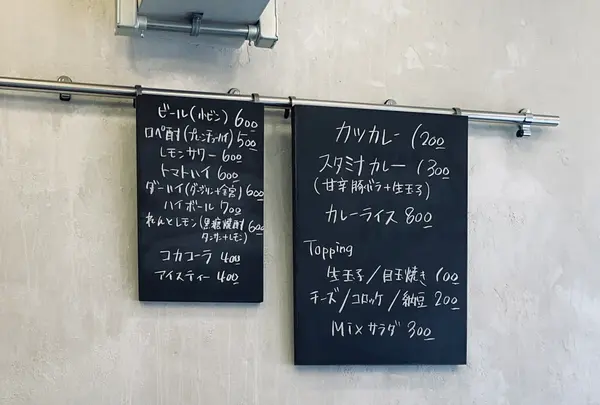 ビール(小ビン) 600
ロペ酎(プレーンチューハイ) 500
レモンサワー 600
トマトハイ 600
ダーハイ(ダージリン+金宮) 600
ハイボール 700
れんとレモン(黒糖焼酎 600
タンサン+レモン)
コカコーラ 400
アイスティー 400
カツカレー 1200
スタミナカレー 1300
(甘辛豚バラ+生玉子)
カレーライス 800
Topping
生玉子/目玉焼き 100
チーズ/コロッケ/納豆 200
Mixサラダ 300